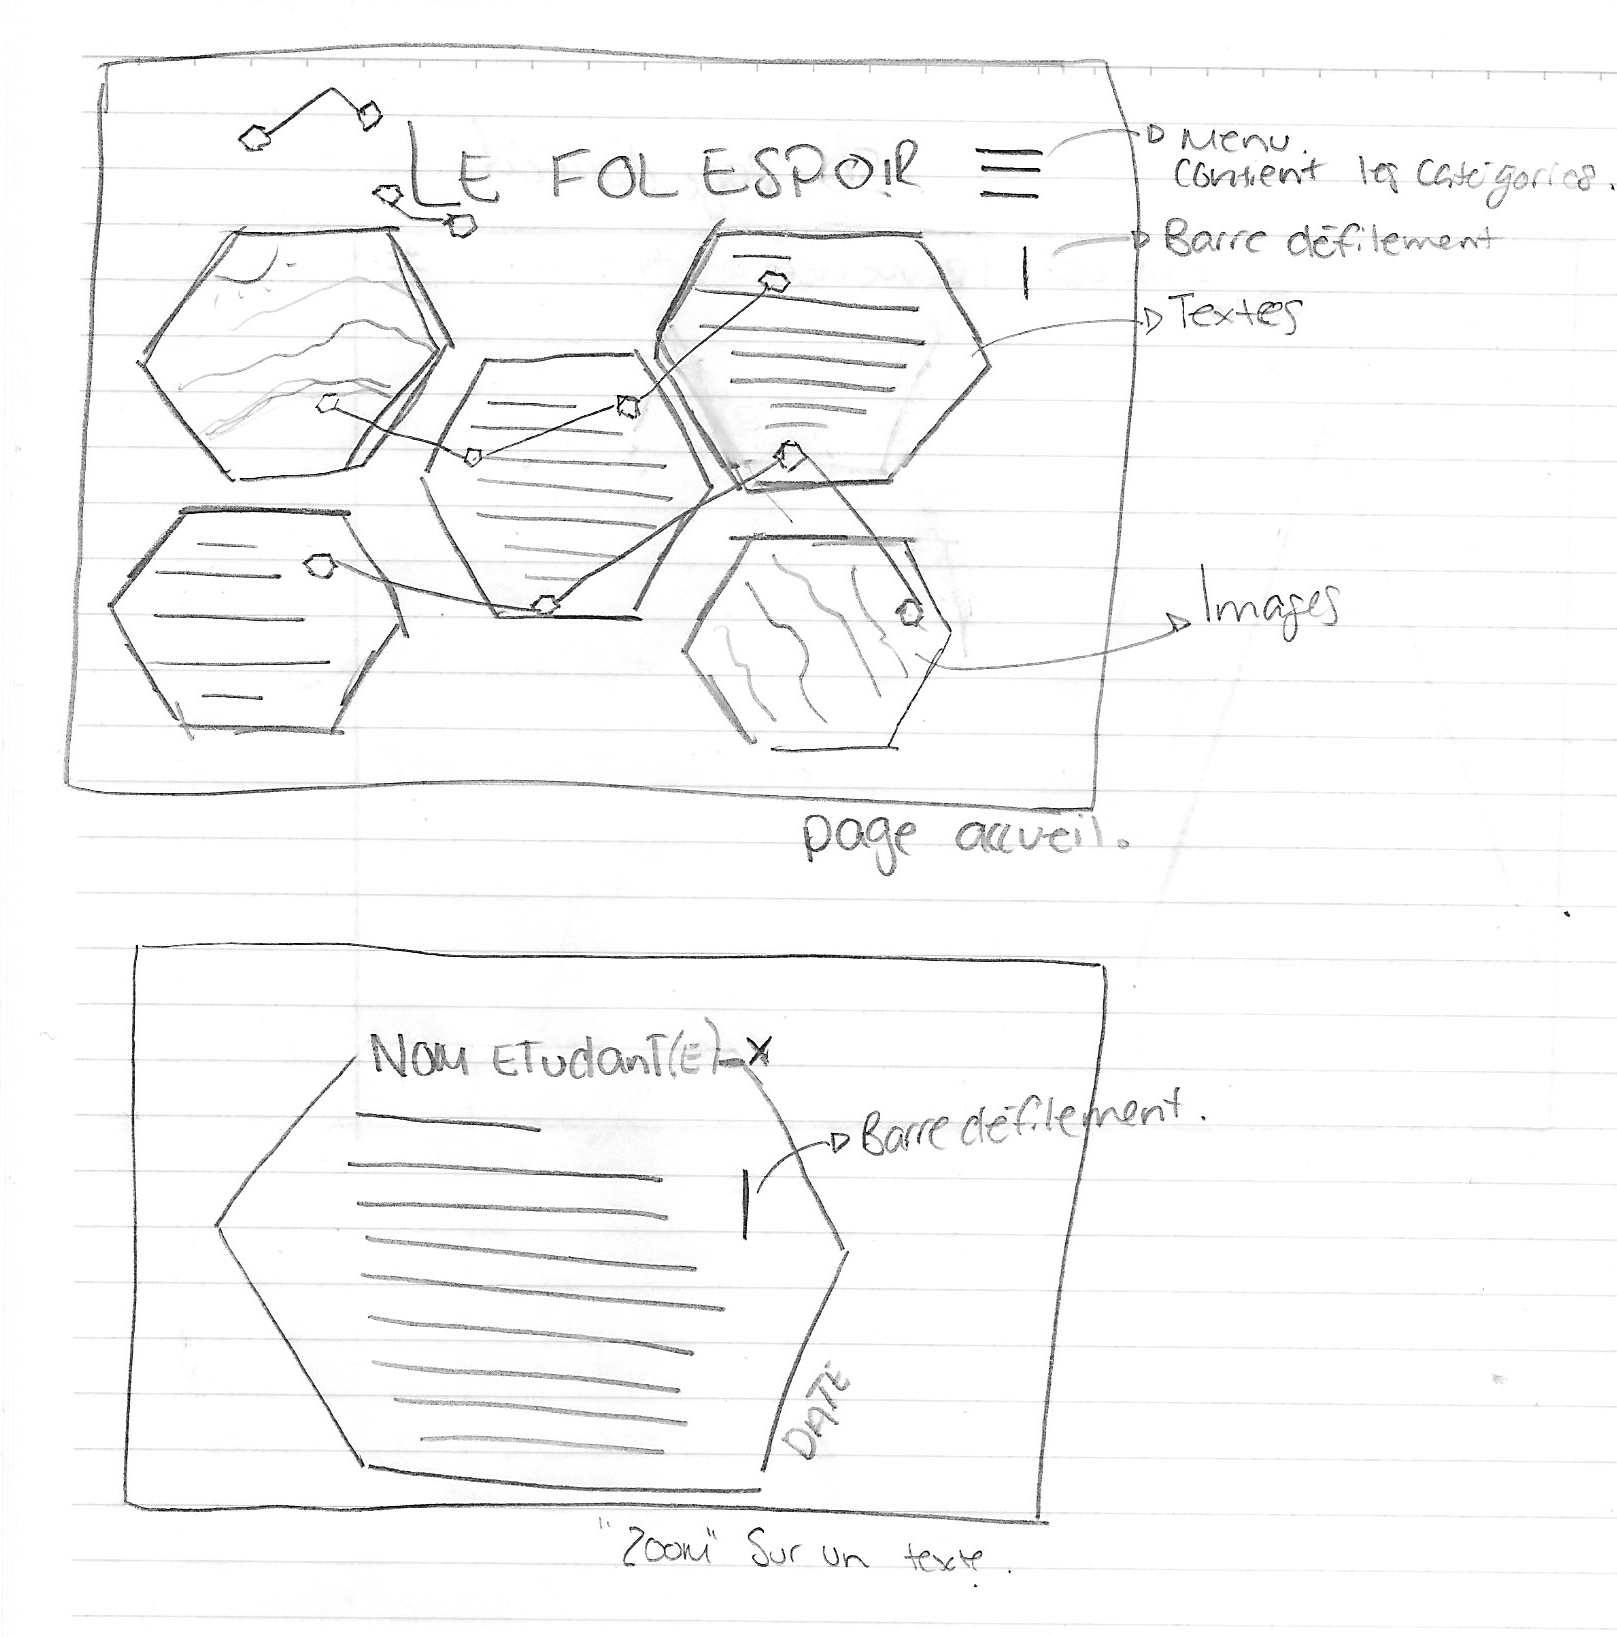 LE FOL ESPOIR
Menu.
contient les catégories.
Barre défilement
Textes
Images
page accueil.
NOM ETudanT(E) X
Barre défilement.
DATE
"Zoom" Sur un texte.